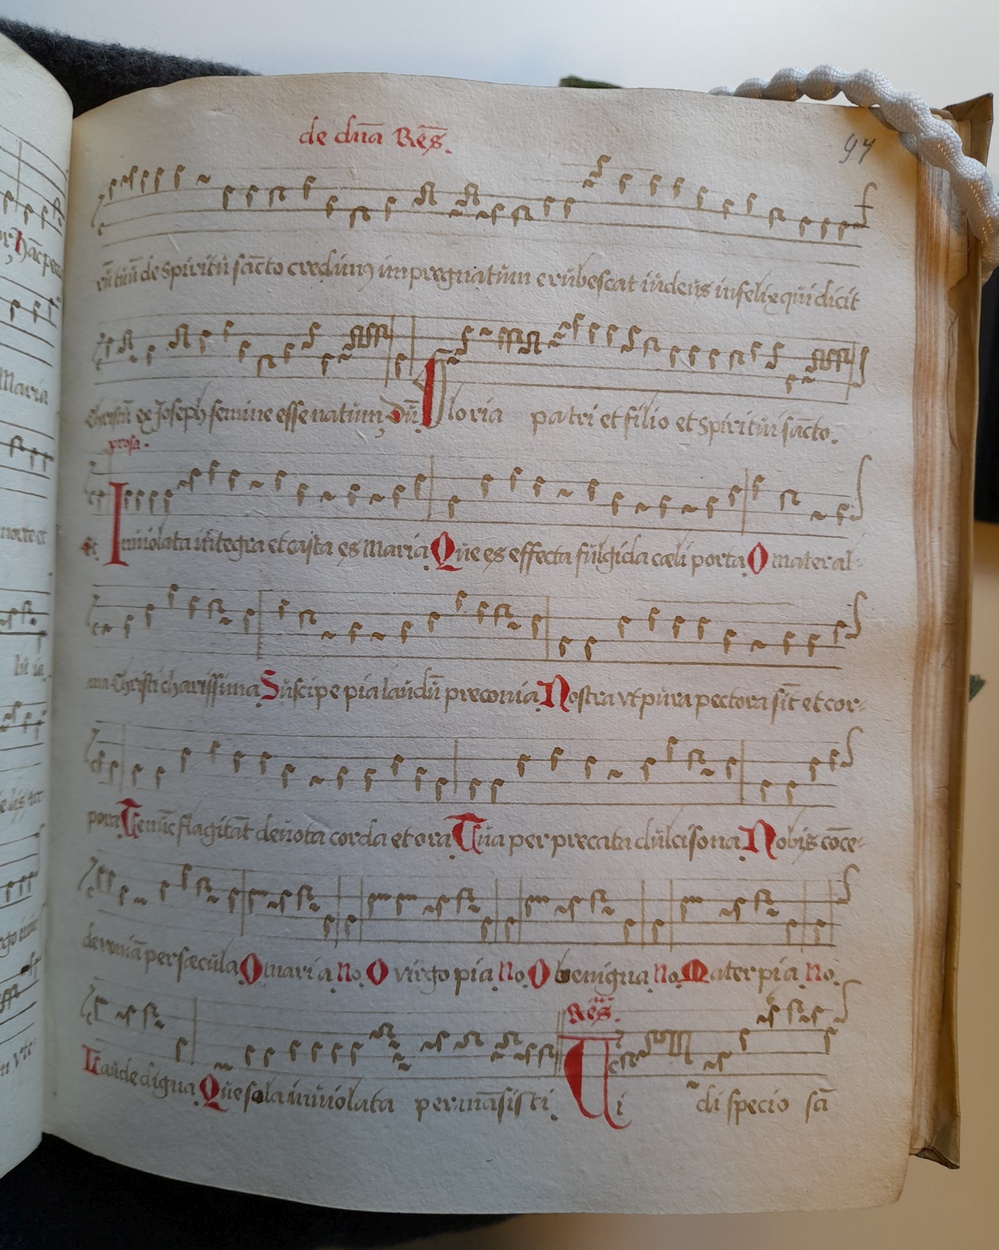 de dūa Rēs.
97
rū tuū de spiritū sācto credimꝰ impregnatūm erūbescat iūdeūs infelix qui dicit
christū ex Joseph semine esse natūm. Dū. Gloria patri et filio et spiritūi sācto.
prosa.
Inuiolata integra et casta es Maria Que es effecta fūlgida cæli porta O mater al-
ma christi charissima Sūscipe pia laūdū preconia Nostra vt pūra pectora sīt et cor-
pora Te nūc flagitāt deūota corda et ora Tūa per precata dūlcisona Nobis cōce-
de veniā per sæcūla O maria No. O virgo pia No. O benigna No. Mater pia No.
Rēs.
Laūde digna Qūe sola inūiolata permāsisti. Ui di specio sā